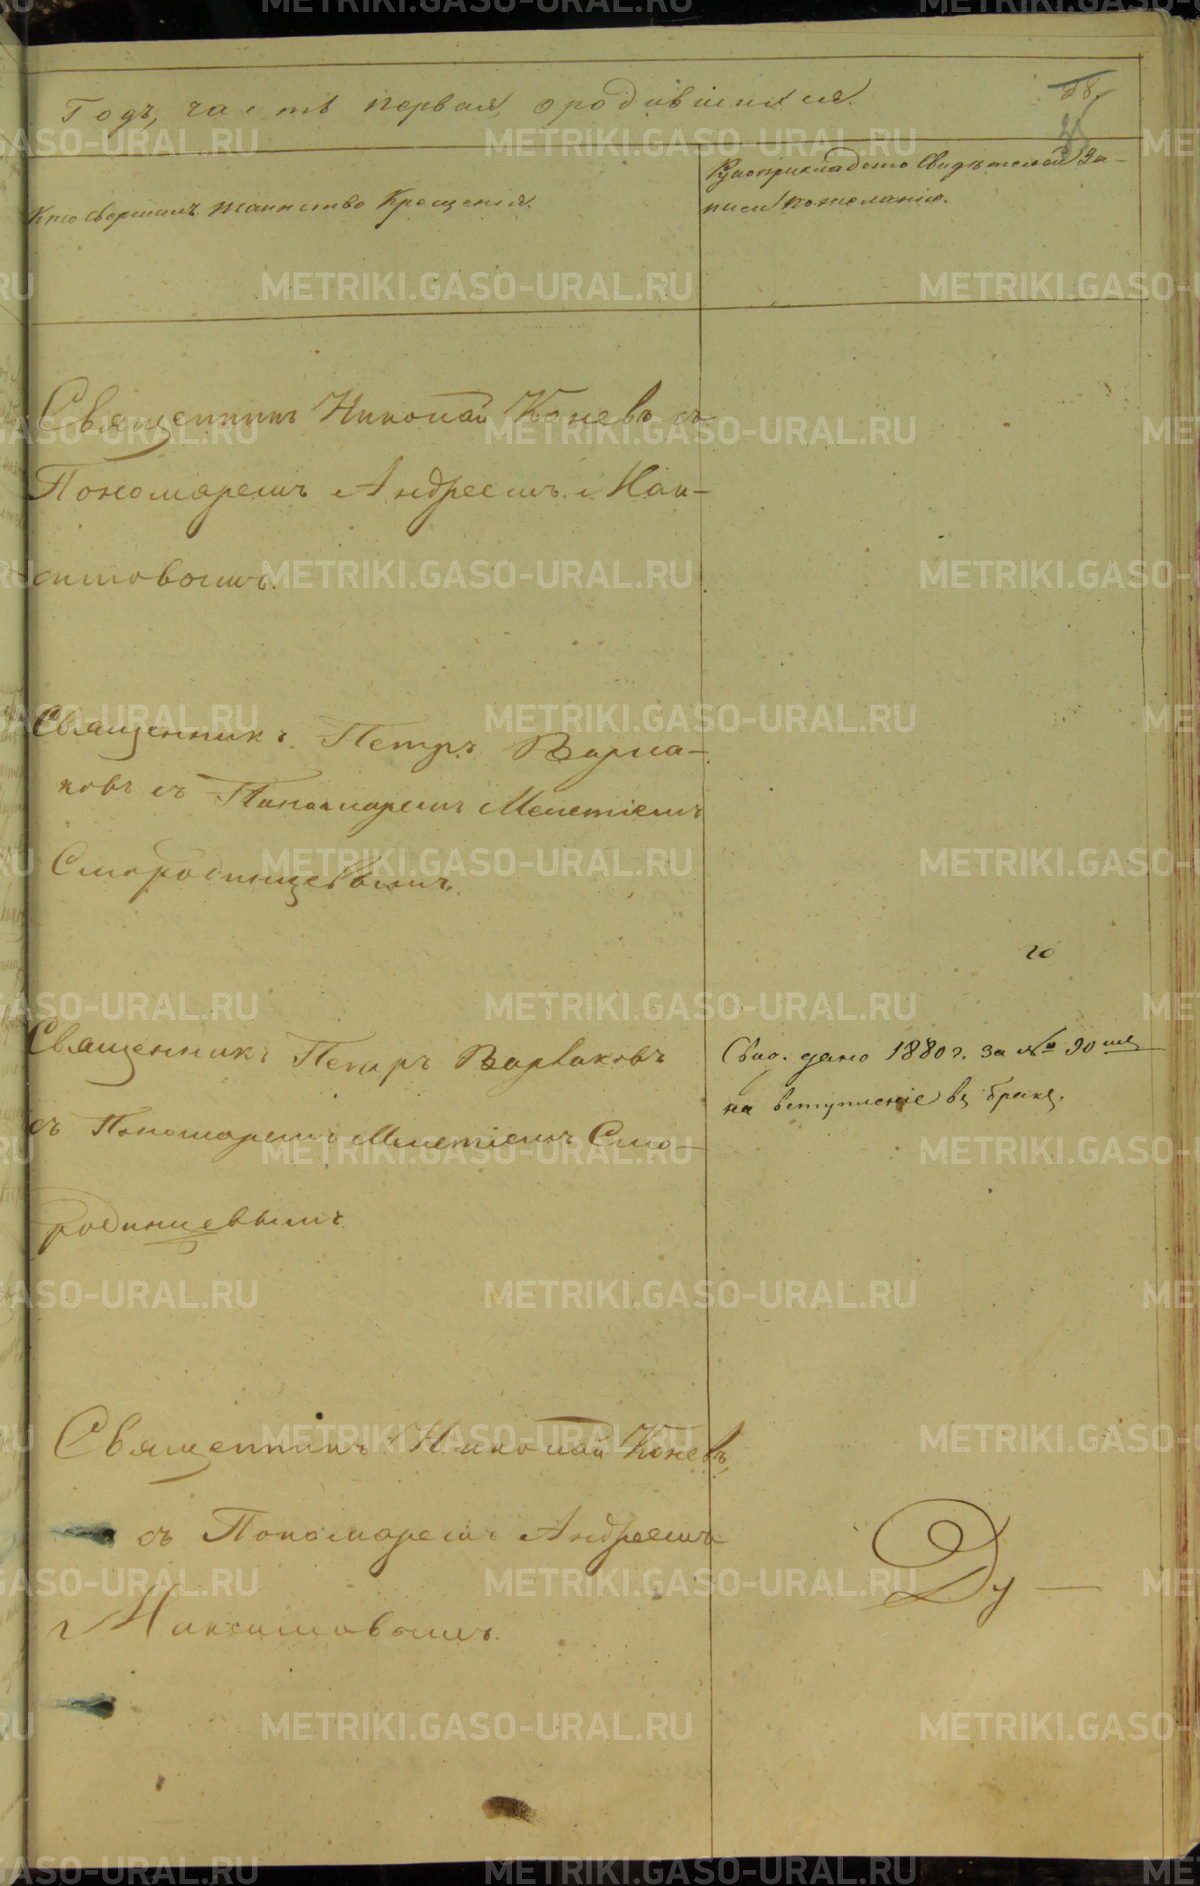 Годъ, часть первая, о родившихся.
Кто совершалъ таинство Крещенія.
Рукоприкладство Свидѣтелей за-
писи по желанію.
Священникъ Николай Коневъ съ
Пономаремъ Андреемъ Мак-
симовымъ.
Священникъ Петръ Варла-
ковъ съ Пономаремъ Мелетіемъ
Смородинцевымъ.
Священникъ Петръ Варлаковъ
съ Пономаремъ Мелетіемъ Смо-
родинцевымъ
го
Свид. дано 1880 г. за № 90 
на вступленіе въ бракъ.
Священникъ Николай Коневъ
съ Пономаремъ Андреемъ
Максимовымъ.
METRIKI.GASO-URAL.RU